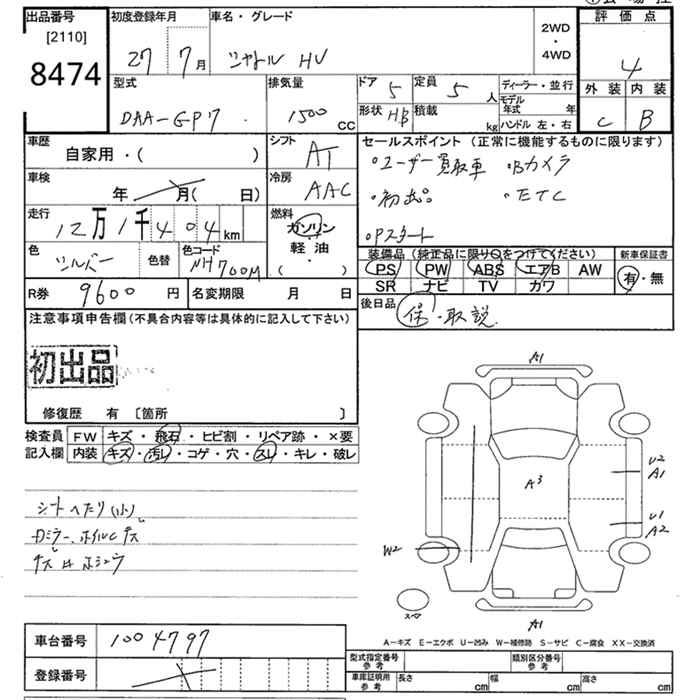 出品番号 [2110] 8474
初度登録年月 27 7月
車名・グレード シャトル HV
2WD・4WD
評価点 4
外装 C 内装 B
型式 DAA-GP7
排気量 1500 CC
ドア 5
定員 5 人
形状 HB
積載 kg
ディーラー・並行
モデル年式 年
ハンドル 左・右
車歴 自家用・( )
シフト AT
セールスポイント (正常に機能するものに限ります)
・ユーザー買取車 ・Bカメラ
・初出品 ・ETC
・Pスタート
車検 年 月( 日)
冷房 AAC
走行 12万1千404km
燃料 ガソリン 軽・油 ・( )
色 シルバー
色替
色コード NH700M
装備品 (純正品に限り○をつけてください)
PS PW ABS エアB AW
SR ナビ TV カワ
新車保証書 有・無
R券 9600 円
名変期限 月 日
後日品 保・取説
注意事項申告欄 (不具合内容等は具体的に記入して下さい)
初出品
修復歴 有 〔箇所 〕
検査員記入欄
FW キズ・飛石・ヒビ割・リペア跡・×要
内装 キズ・汚レ・コゲ・穴・スレ・キレ・破レ
シートへたり(小)
Dミラー、ホイルCキズ
A1
A3
U2
A1
U1
A2
W2
スペア
A1
A-キズ E-エクボ U-凹み W-補修跡 S-サビ C-腐食 XX-交換済
車台番号 1004797
登録番号
型式指定番号 参考
類別区分番号 参考
車庫証明用 参考 長さ cm 幅 cm 高さ cm